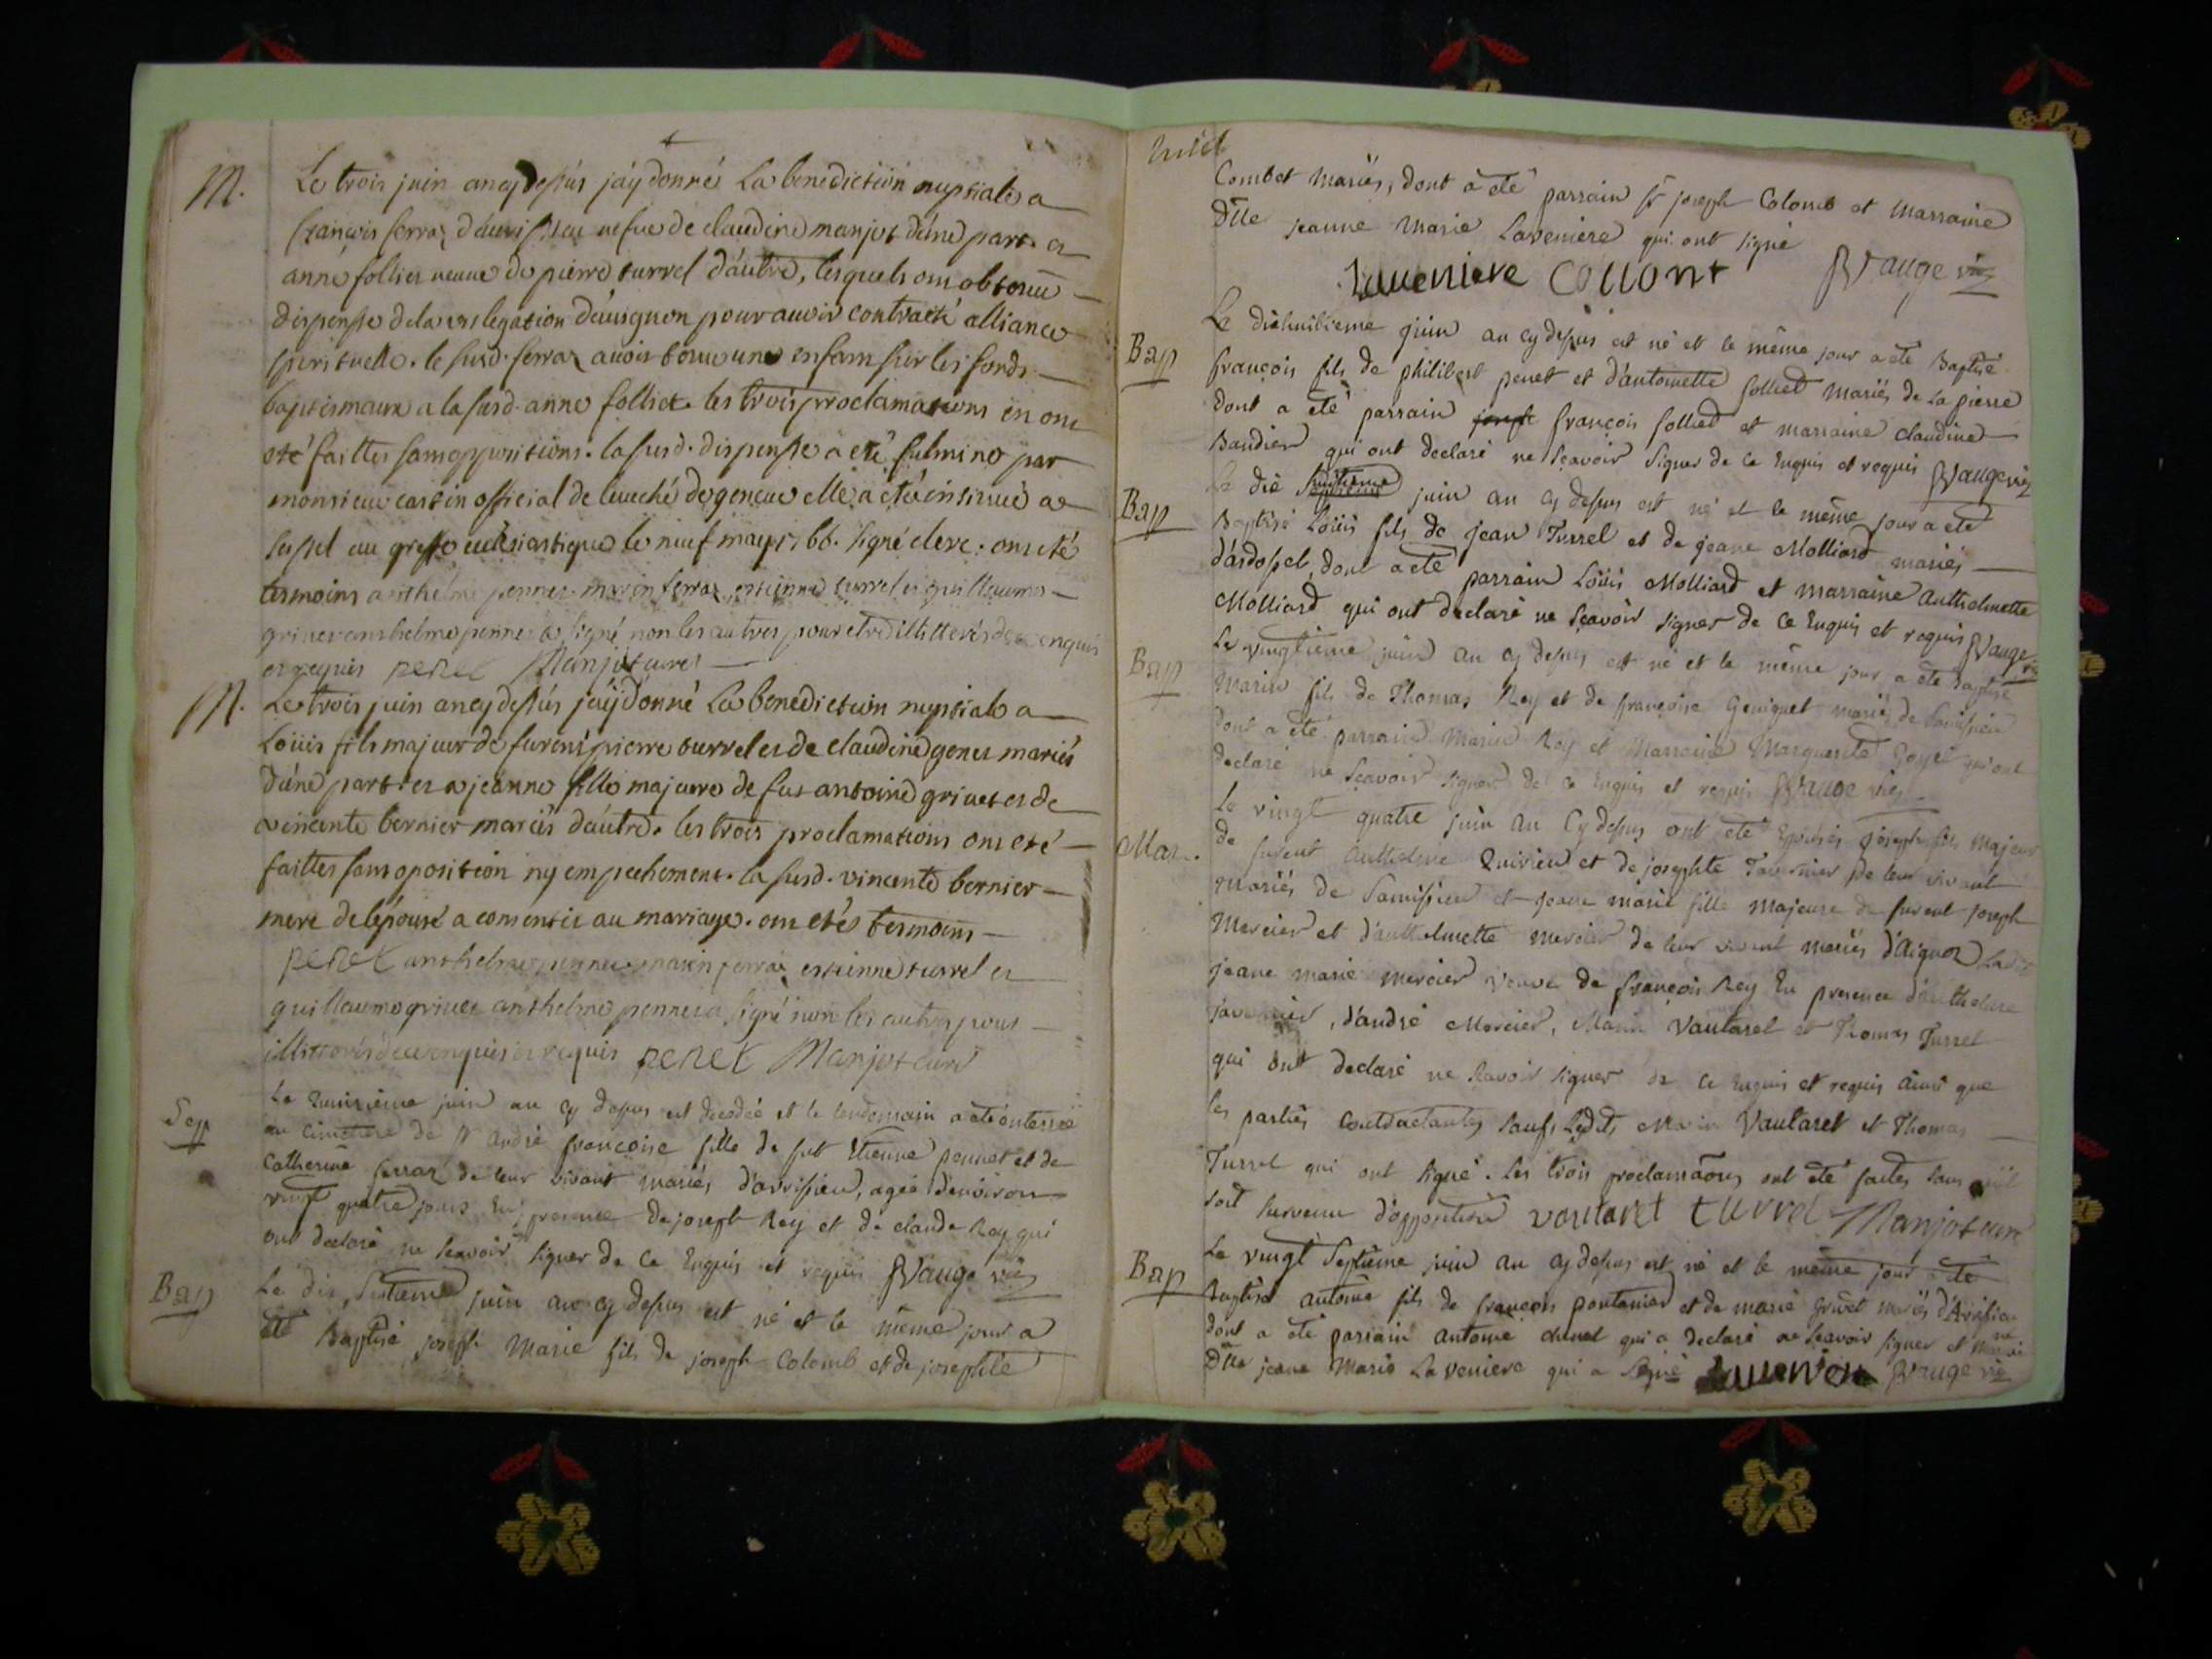 M. Le trois juin an cy dessus j'ay donné La benediction nuptiale a
françois ferraz veuf de claudine manjot d'une part et
anne folliet veuve de pierre turrel d'autre, lesquels ont obtenu
dispense de la vislegation d'avignon pour avoir contracté alliance
spirituelle. le susd. ferraz avoir tenu une enfant sur les fonds
baptismaux a la susd. anne folliet. les trois proclamations en ont
eté faittes sans oppositions. la susd. dispense a eté fulminé par
monsieur official de leveché de geneve elle a eté insinué a
seissel au greffe eclesiastique le neuf may 1766. signé clerc. ont eté
tesmoins anthelme pennet marin ferraz, estienne turrel et guillaume
grivet anthelme pennet a signé non les autres pour etre illitterés de ce enquis
et requis penet Manjot curé
M. Le trois juin an cy dessus j'ay donné La benediction nuptiale a
Loüis fils majeur de furent pierre turrel et de claudine genet mariés
d'une part et a jeanne fille majeure de fut antoine grivet et de
vincente bernier mariés d'autre. les trois proclamations ont eté
faittes sans oposition ny empechement. la susd. vincente bernier
mere de lépouse a consentie au mariage. ont etés tesmoins
penet anthelme pennet marin ferraz estienne turrel et
guillaume grivet anthelme pennet a signé non les autres pour
illitterés de ce enquis et requis penet Manjot curé
Sep Le quinzième juin an cy dessus est decedée et le lendemain a été enterrée
au cimetiere de St André françoise fille de fut Etienne pennet et de
Catherine ferraz de leur vivant mariés d'arvisieu, agée d'environ
vingt quatre jours En presence de joseph Rey et de claude Rey qui
ont declaré ne sçavoir signer de ce Enquis et requis Vauge vic
Bap Le dix septieme juin an cy dessus est né et le même jour a
été Baptisé joseph Marie fils de joseph Colomb et de josephte
Combet Mariés, dont a été parrain Sr joseph Colomb et Marraine
Dlle jeanne Marie Laveniere qui ont signé
Laueniere Collont Vauge vic
Bap Le dixhuitieme juin an cy dessus est né et le même jour a été Baptisé
françois fils de philibert penet et d'antoinette folliet Mariés de La pierre
dont a été parrain joseph françois folliet et marraine claudine
Baudier qui ont declaré ne sçavoir signer de ce Enquis et requis Vauge vic
Bap Le dix huitieme juin an cy dessus est né et le même jour a été
Baptisé Loüis fils de jean Turrel et de jeane Molliard mariés
d'ardosset, dont a été parrain Loüis Molliard et marraine Anthelmette
Molliard qui ont declaré ne sçavoir signer de ce Enquis et requis Vauge vic
Bap Le vingtieme juin an cy dessus est né et le même jour a été Baptisé
Marin fils de Thomas Rey et de françoise Geniquet mariés de
Dont a été parrain Marin Rey et Marraine Marguerite Goyet qui ont
declaré ne sçavoir signer de ce Enquis et requis Vauge vic
Mar. Le vingt quatre juin an cy dessus ont été Epousés joseph fils Majeur
de furent Anthelme et de josephte Tavernier de leur vivant
mariés de et jeane marie fille majeure de furent joseph
Mercier et d'anthelmette mercier de leur vivant mariés
jeane marie mercier veuve de françois Rey En presence d'anthelme
, d'andré Mercier, Marin Vautaret et Thomas Turrel
qui ont declaré ne sçavoir signer de ce Enquis et requis ainsi que
les parties Contractantes sauf Lesdits Marin Vautaret et Thomas
Turrel qui ont signé. Les trois proclamaōns ont été faites sans qu'il
soit survenu d'opposition vautaret turrel Manjot curé
Bap Le vingt septième juin an cy dessus est né et le même jour été
Baptisé antoine fils de françois pontanier et de marie Grivet mariés
dont a été parrain antoine qui a declaré ne sçavoir signer et
Dlle jeane Marie Laveniere qui a signé Laueniere Vauge vic